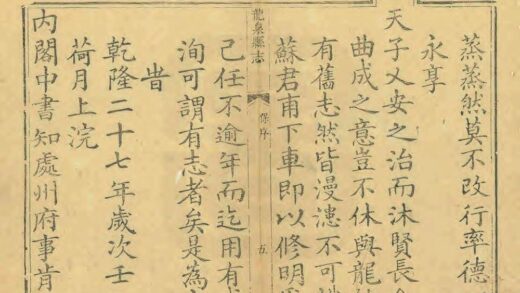 蒸蒸然莫不改行率德
永享
天子乂安之治而沐賢長
曲成之意豈不休與龍
有舊志然皆漫漶不可
蘇君甫下車即以修明
龍泉縣志
序
五
己任不逾年而迄用有
洵可謂有志者矣是為
旹
乾隆二十七年歲次壬
荷月上浣
內閣中書知處州府事肯